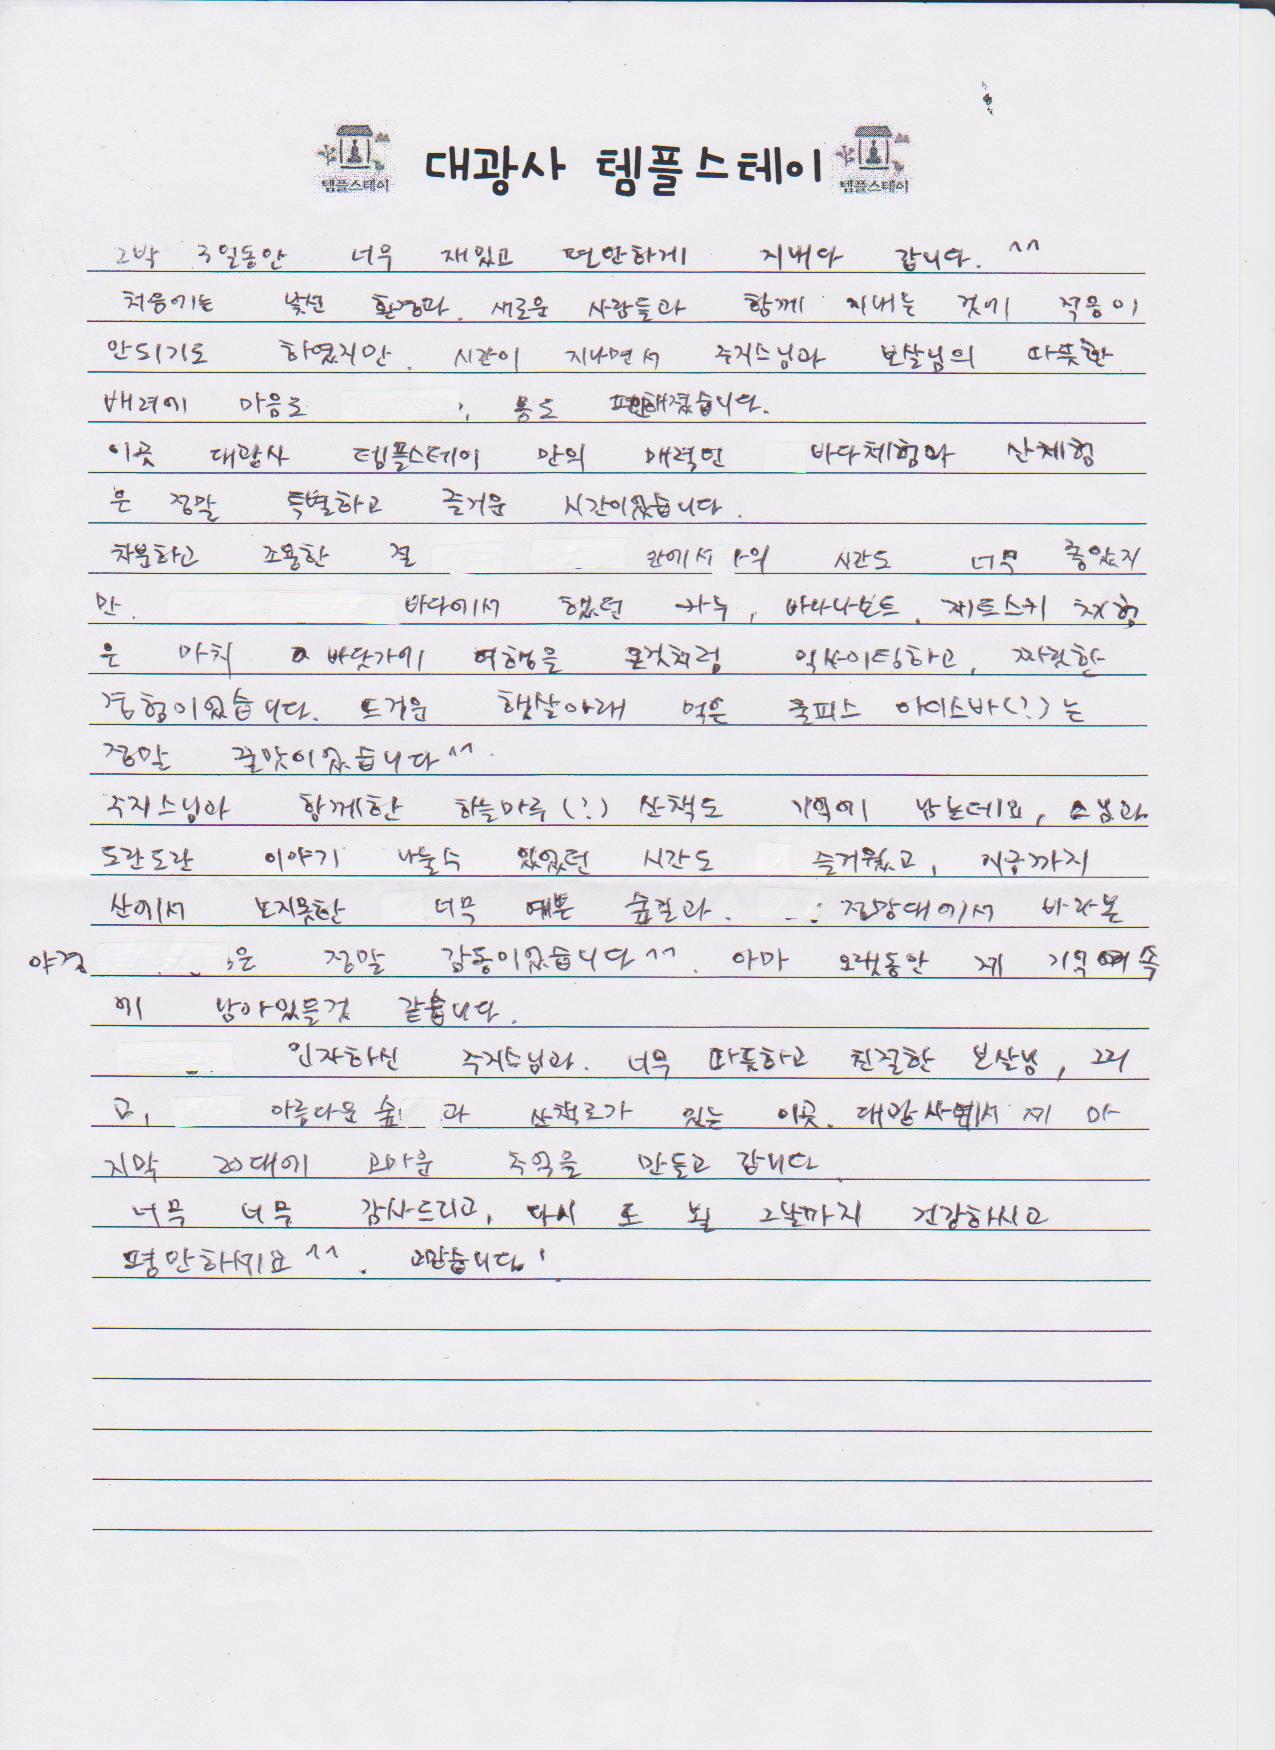 템플스테이 대광사 템플스테이 템플스테이
2박 3일동안 너무 재밌고 편안하게 지내다 갑니다. ^^
처음에는 낯선 환경과, 새로운 사람들과 함께 지내는 것에 적응이
안되기도 하였지만, 시간이 지나면서 주지스님과 보살님의 따뜻한
배려에 마음도 몸도 편안해졌습니다.
이곳 대광사 템플스테이 만의 매력인 바다체험과 산체험
은 정말 특별하고 즐거운 시간이었습니다.
차분하고 조용한 절 안에서의 시간도 너무 좋았지
만, 바다에서 했던 카누, 바나나보트, 제트스키 체험
은 마치 바닷가에 여행을 온것처럼 익사이팅하고, 짜릿한
경험이었습니다. 뜨거운 햇살아래 먹은 쿨피스 아이스바(?)는
정말 꿀맛이었습니다^^.
주지스님과 함께한 하늘마루(?) 산책도 기억에 남는데요, 스님과
도란도란 이야기 나눌수 있었던 시간도 즐거웠고, 지금까지
산에서 보지못한 너무 예쁜 숲길과, 전망대에서 바라본
야경은 정말 감동이었습니다^^. 아마 오랫동안 제 기억 속
에 남아있을것 같습니다.
인자하신 주지스님과, 너무 따뜻하고 친절한 보살님, 그리
고, 아름다운 숲과 산책로가 있는 이곳, 대광사에서 제 마
지막 20대에 고마운 추억을 만들고 갑니다.
너무 너무 감사드리고, 다시 또 뵐 그날까지 건강하시고
평안하세요^^. 고맙습니다!